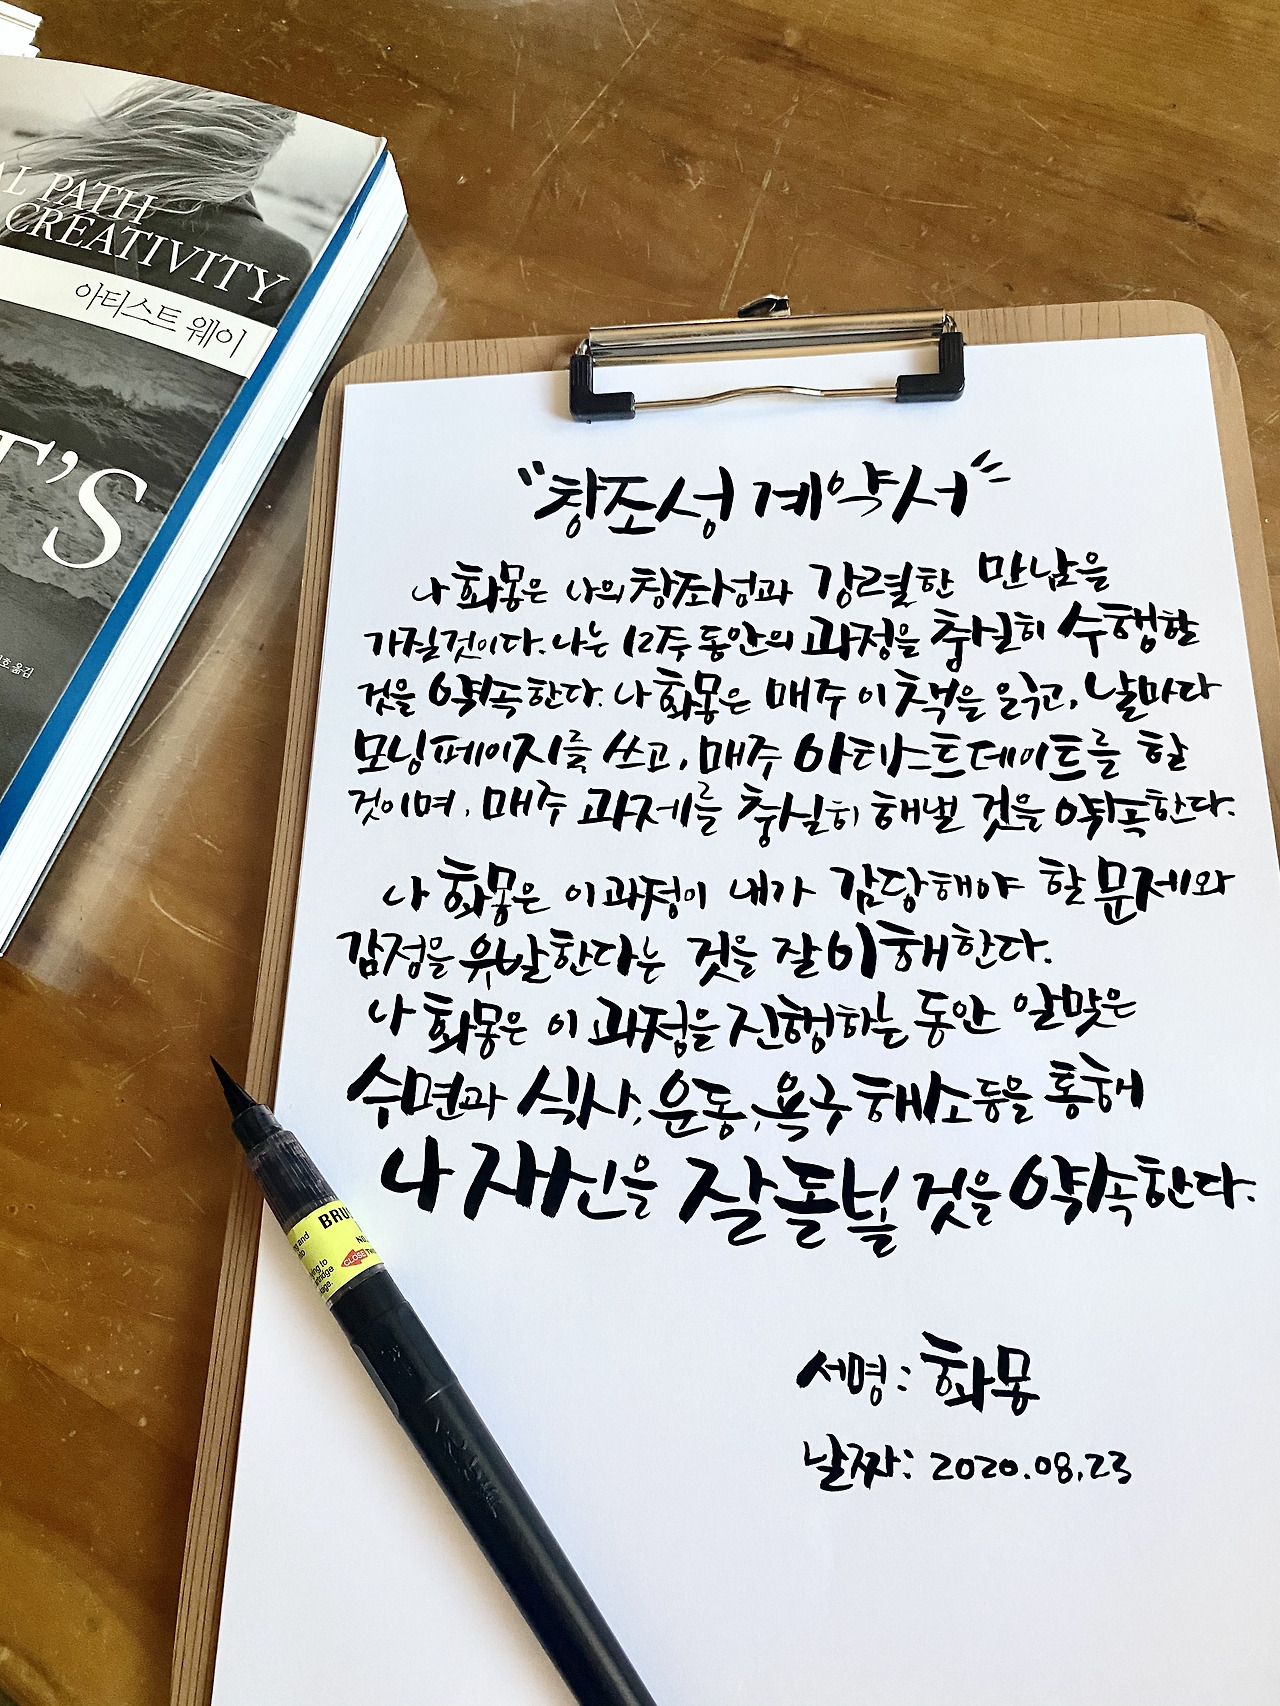 AL PATH
CREATIVITY
아티스트 웨이
T'S
호 옮김
"창조성 계약서"
나 화몽은 나의 창조성과 강렬한 만남을
가질 것이다. 나는 12주 동안의 과정을 충실히 수행할
것을 약속한다. 나 화몽은 매주 이 책을 읽고, 날마다
모닝페이지를 쓰고, 매주 아티스트데이트를 할
것이며, 매주 과제를 충실히 해낼 것을 약속한다.
나 화몽은 이 과정이 내가 감당해야 할 문제와
감정을 유발한다는 것을 잘 이해한다.
나 화몽은 이 과정을 진행하는 동안 알맞은
수면과 식사, 운동, 욕구 해소 등을 통해
나 자신을 잘 돌볼 것을 약속한다.
서명: 화몽
날짜: 2020.08.23
BRU
CLOSE